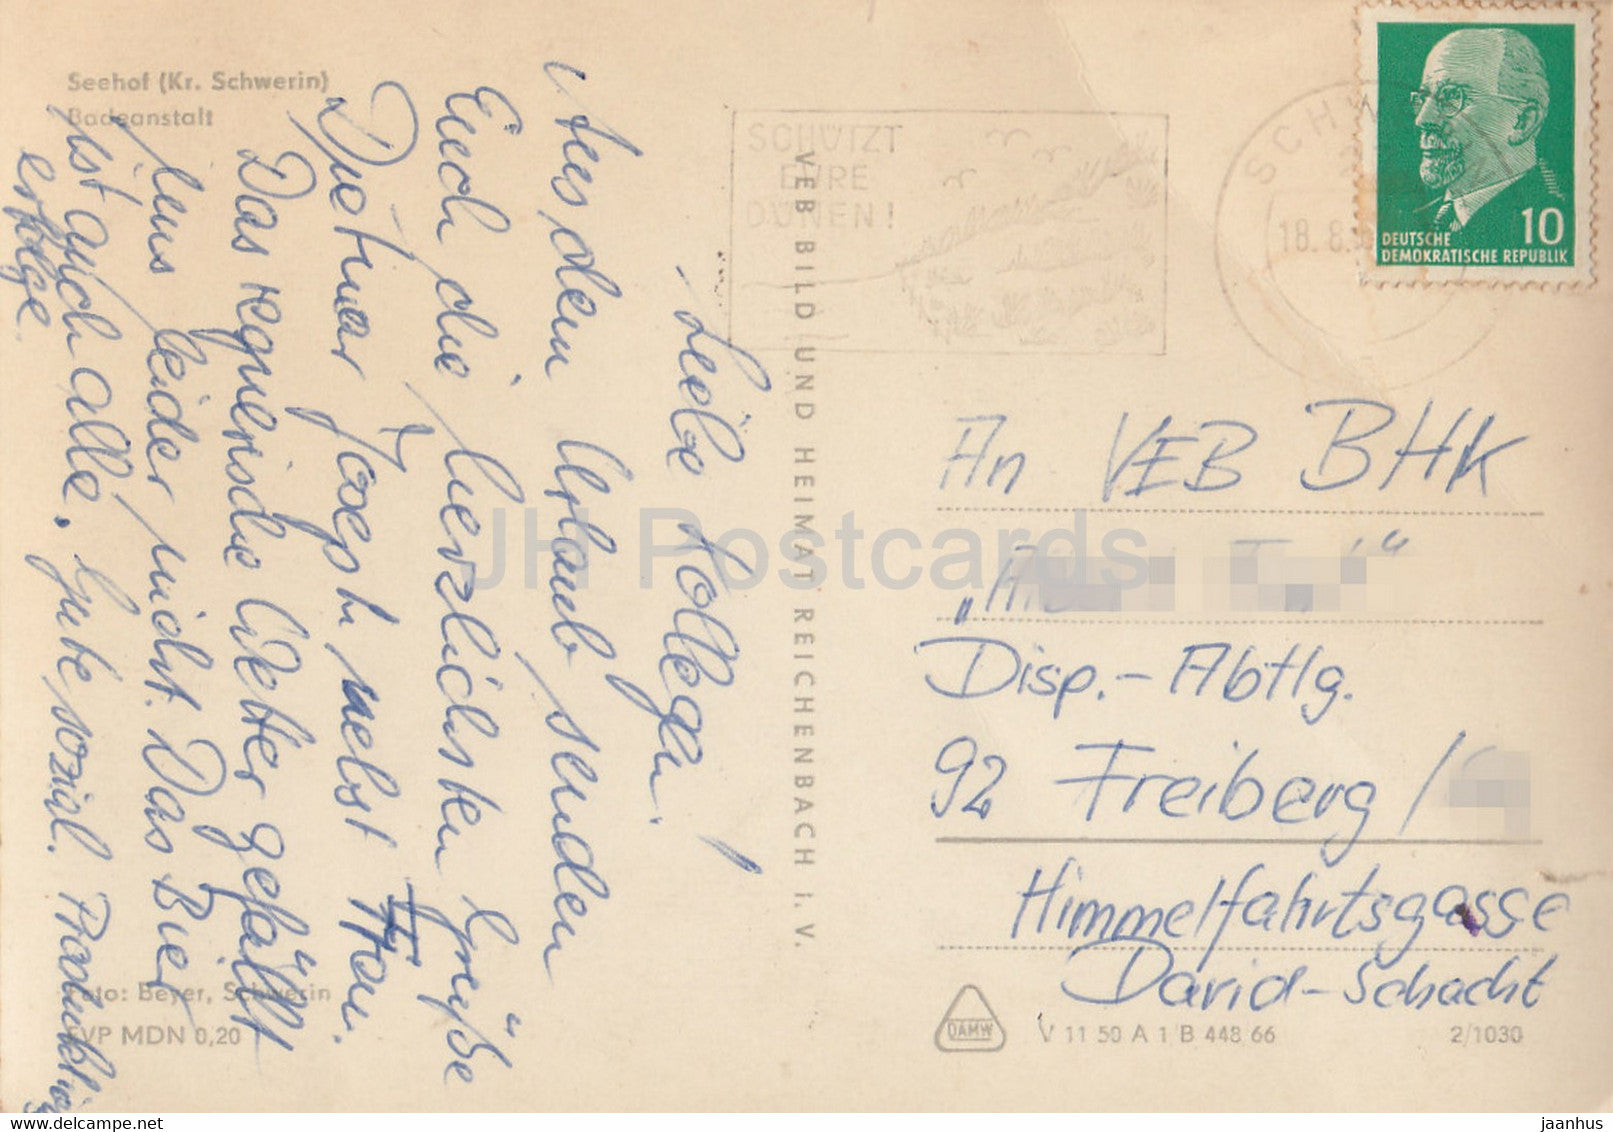 Seehof (Kr. Schwerin)
Badeanstalt
Liebe Kollegen!
Aus dem Urlaub senden
Euch die herzlichsten Grüße
Dietmar Joseph nebst Frau.
Das regnerische Wetter gefällt
uns leider nicht. Das Bier
ist auch alle. Gute sozial. Produktions
erfolge.
Foto: Beyer, Schwerin
EVP MDN 0,20
VEB BILD UND HEIMAT REICHENBACH i. V.
SCHÜTZT
EURE
DÜNEN!
SCHW
18.8.
10
DEUTSCHE
DEMOKRATISCHE REPUBLIK
An VEB BHK
Disp.-Abtlg.
92 Freiberg /
Himmelfahrtsgasse
David-Schacht
DAMW
V 11 50 A 1 B 448 66
2/1030
JH Postcards
delcampe.net
jaanhus